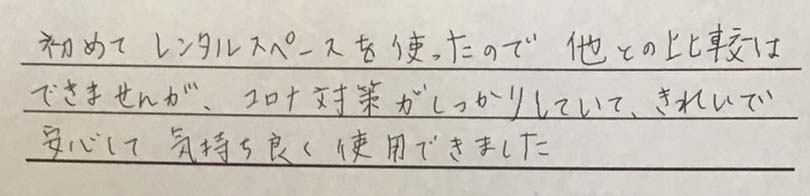 初めて レンタルスペースを使ったので 他との比較は
できませんが、コロナ対策がしっかりしていて、きれいで
安心して 気持ち良く使用できました